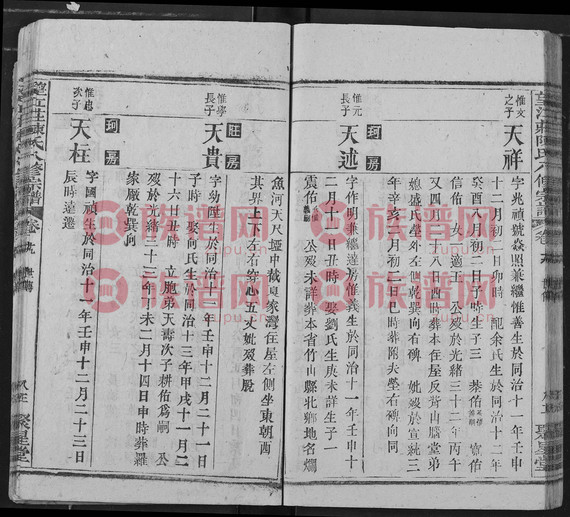 惟文之子
天祥
字兆禎號焱照兼繼惟善生於同治十一年壬申
十二月初二日卯時 配余氏生於同治十二年
癸酉八月初二日 時生子三 恭佑 寅佑
信佑 女一適王 公歿於光緒三十二年丙午
又四月二十八 時葬本庄屋反背山牆堂弟
媳盛氏塋外左側乾巽向右碑 妣歿於宣統三
年辛亥六月初二日巳時葬附夫塋右碑向同
惟元長子
天述
字作明兼繼達房惟義生於同治十一年壬申十
二月十二日丑時 娶劉氏生庚未詳生子一
震佑 公歿未詳葬本省竹山縣北鄉地名爛
魚河天尺堙中截東家灣住屋左側坐東朝西
其界上下左右穿心五丈妣歿葬厫
旺房
惟學長子
天貴
字幼臣生於同治十一年壬申十二月二十一日
子時 娶向氏生於同治十三年甲戌十一月二
十六日丑時 立胞弟天壽次子耕佑爲嗣 公
歿於光緒三十三年丁未二月十四日申時葬羅
家厫乾巽向
珂房
惟忠次子
天柱
字國禎生於同治十一年壬申十二月二十三日
辰時遠遷
珂房
聚星堂
聚星堂
族谱网